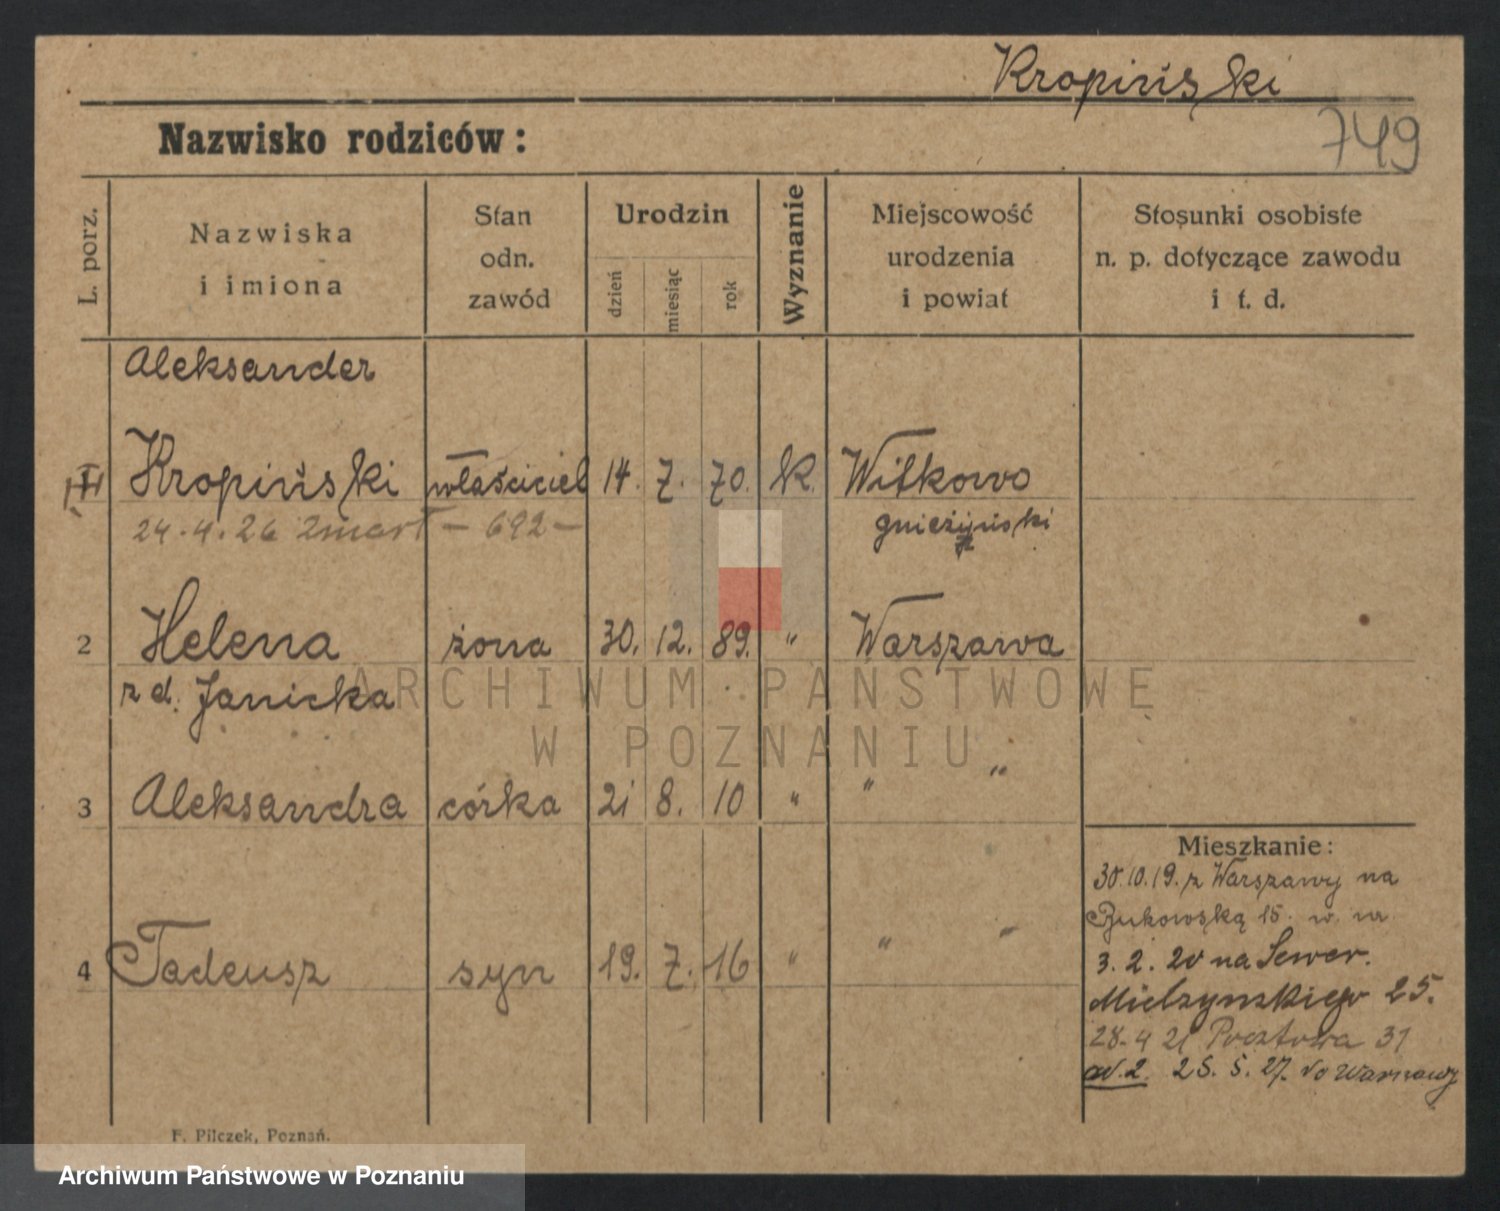 Kropiński
749
Nazwisko rodziców:
L. porz.
Nazwiska
i imiona
Stan
odn.
zawód
Urodzin
dzień
miesiąc
rok
Wyznanie
Miejscowość
urodzenia
i powiat
Stosunki osobiste
n. p. dotyczące zawodu
i t. d.
Aleksander
Kropiński właściciel 14. 7. 70. k. Witkowo
24.4.26 zmarł - 692 - gnieźyński
2 Helena żona 30. 12. 89. " Warszawa
z d. Janicka
ARCHIWUM PAŃSTWOWE
W POZNANIU
3 Aleksandra córka 21 8. 10 " " "
Mieszkanie:
30.10.19. z Warszawy na
Bukowską 15. w. m.
4 Tadeusz syn 19. 7. 16 " " "
3. 2. 20 na Sewer.
Mielzynskiego 25.
28.4 21 Pocztowa 31
ad. 2. 25. 5. 27. do Warszawy
F. Pilczek, Poznań.
Archiwum Państwowe w Poznaniu